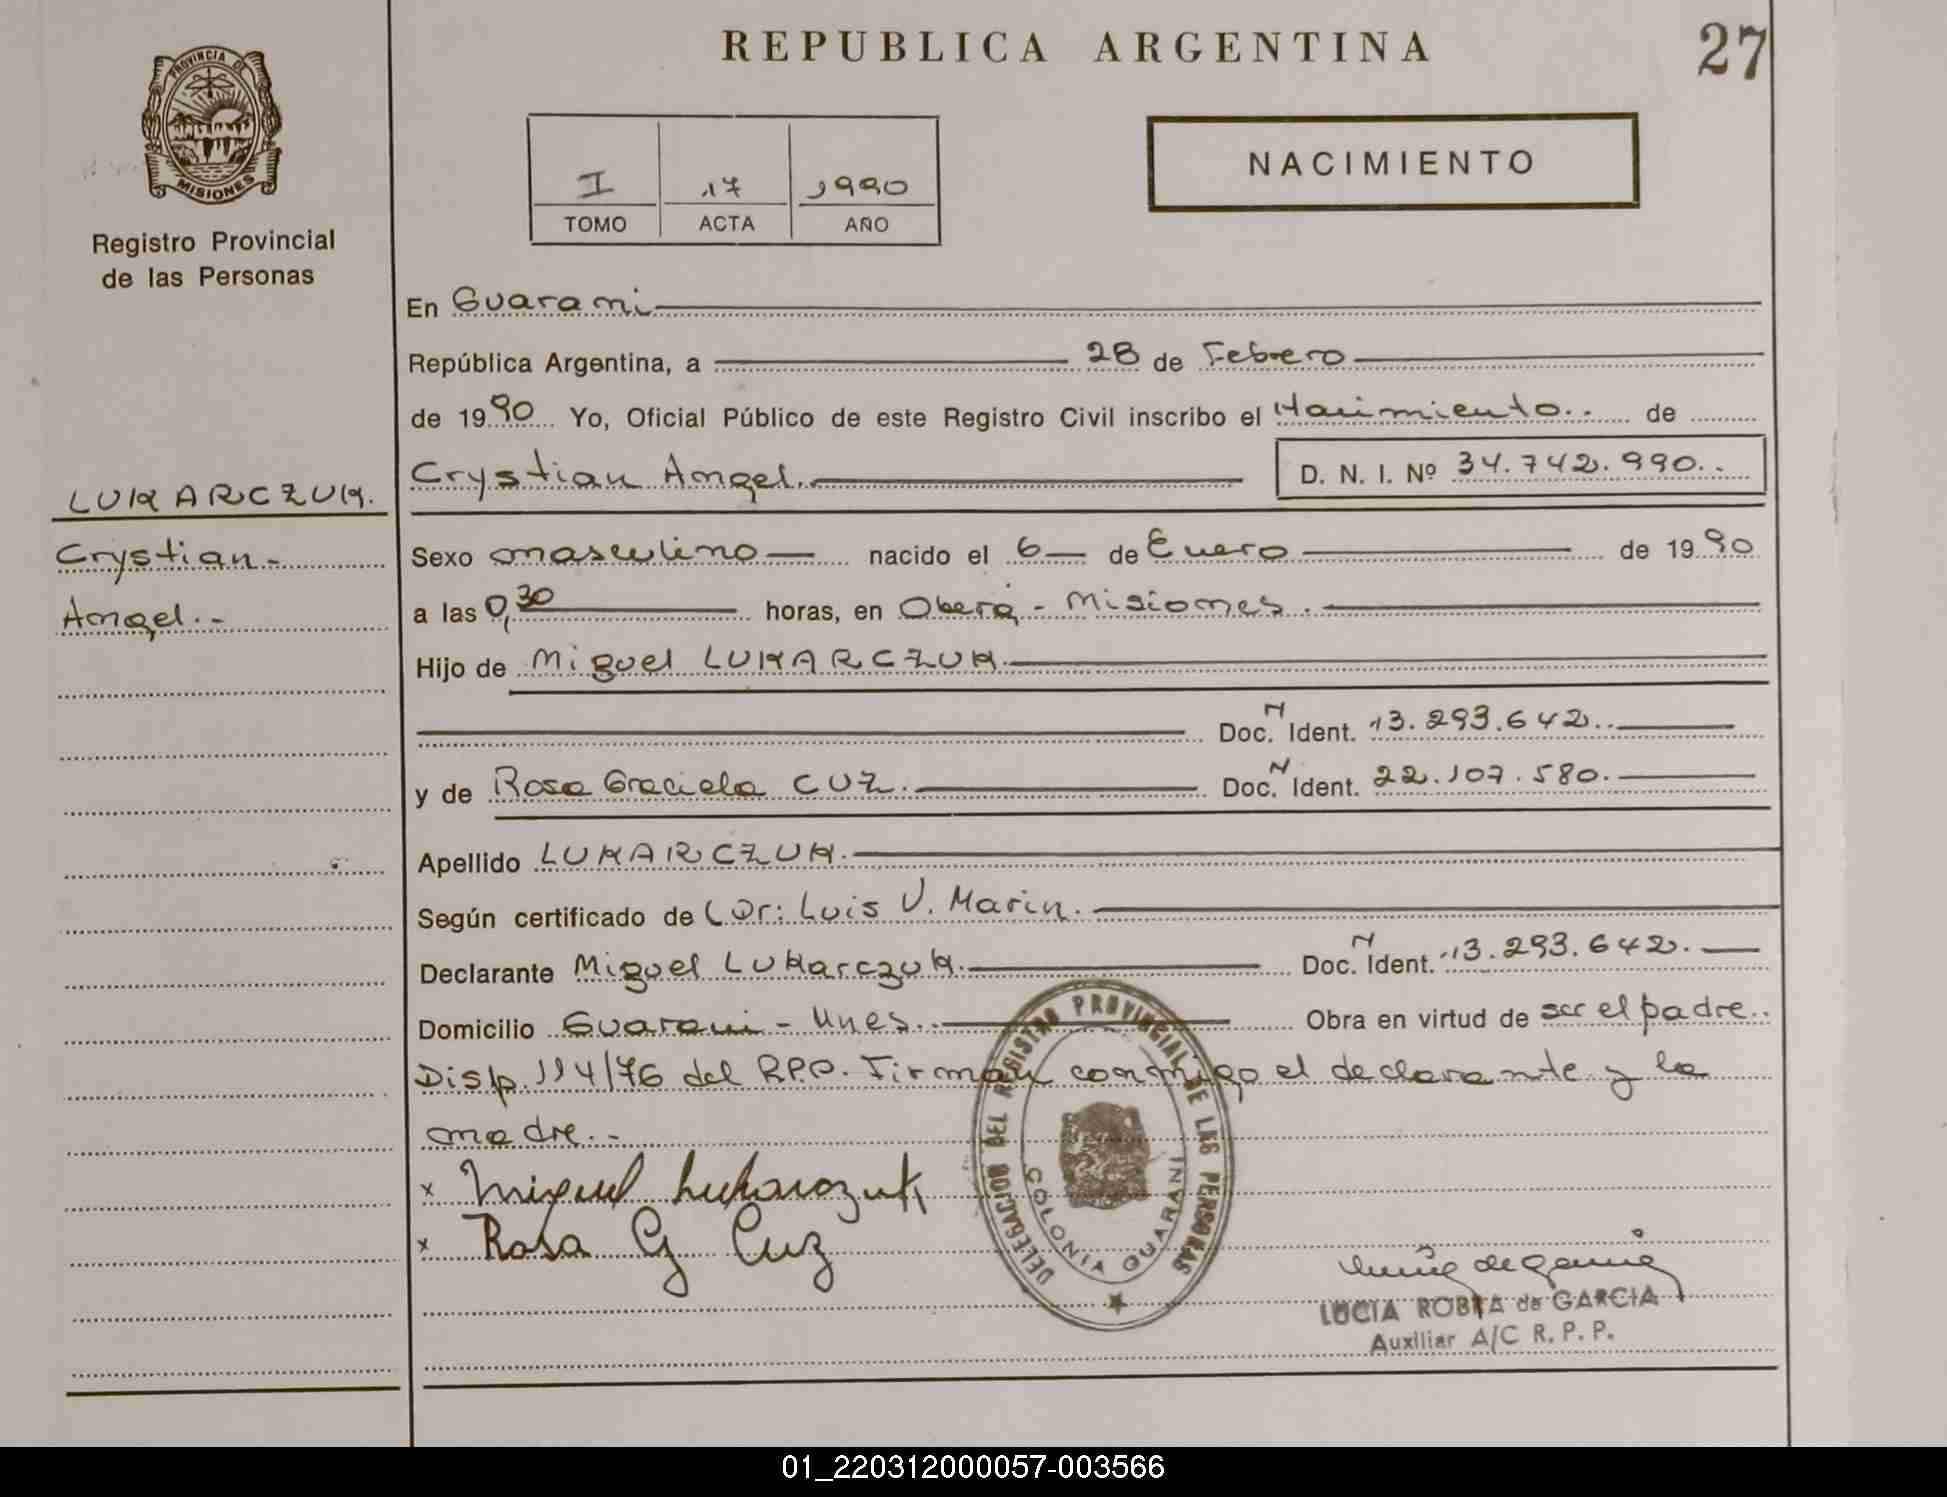 REPUBLICA ARGENTINA
27
PROVINCIA DE
MISIONES
Registro Provincial
de las Personas
I 17 1990
TOMO ACTA AÑO
NACIMIENTO
En Guarani
República Argentina, a 28 de Febrero
de 1990 Yo, Oficial Público de este Registro Civil inscribo el Nacimiento.. de
Crystian Angel. D. N. I. Nº 34.742.990..
LUKARCZUK.
Crystian-
Angel.-
Sexo masculino nacido el 6 de Enero de 1990
a las 0,30 horas, en Oberá - Misiones.
Hijo de Miguel LUKARCZUK.
Doc. N Ident. 13.293.642..
y de Rosa Graciela CUZ. Doc. N Ident. 22.107.580.
Apellido LUKARCZUK.
Según certificado de Dr: Luis V. Marin.
Declarante Miguel LUKarczuK. Doc. N Ident. 13.293.642.
Domicilio Guarani - Mnes.. Obra en virtud de ser el padre..
Disp. 114/76 del R.P.P. Firman conmigo el declarante y la
madre.-
x Miguel Lukarczuk
x Rosa G Cuz
DELEGACION DEL REGISTRO PROVINCIAL DE LAS PERSONAS
COLONIA GUARANI
LUCIA ROBRA de GARCIA
Auxiliar A/C R. P. P.
01_220312000057-003566